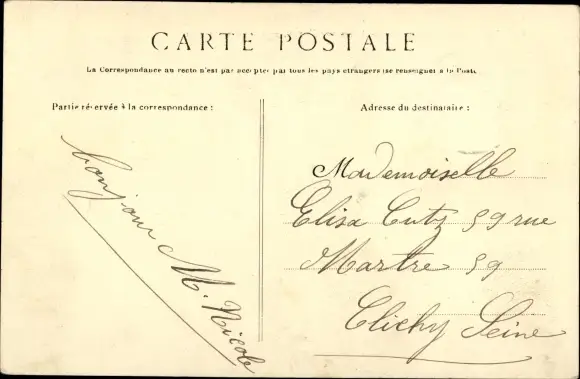 CARTE POSTALE
La Correspondance au recto n'est pas acceptée par tous les pays étrangers (se renseigner à la Poste)
Partie réservée à la correspondance :
Adresse du destinataire :
bonjour M. Nicole
Mademoiselle
Elisa Cutz 59 rue
Martre 59
Clichy Seine